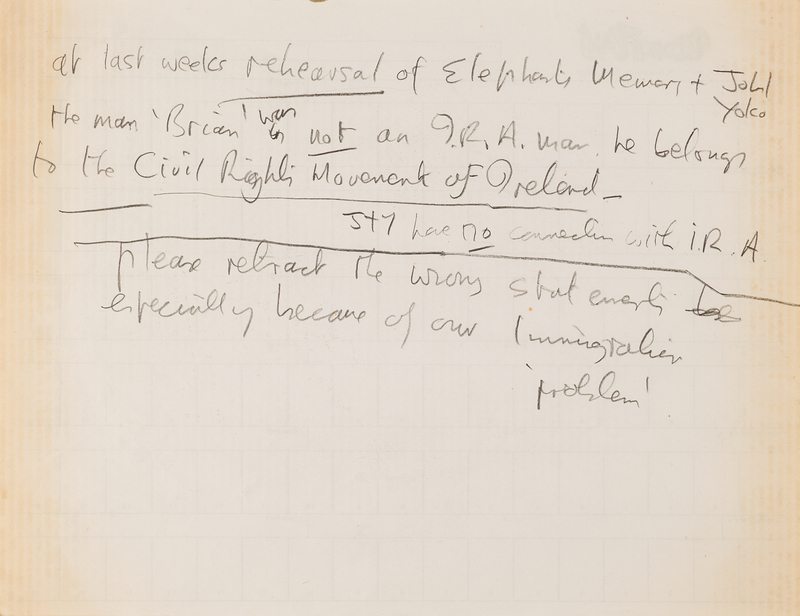 at last weeks rehearsal of Elephants Memory + John
Yoko
the man 'Brian' was not an I.R.A. man. he belongs
to the Civil Rights Movement of Ireland —
J+Y have no connection with I.R.A.
please retract the wrong statements
especially because of our Immigration
'problem'.